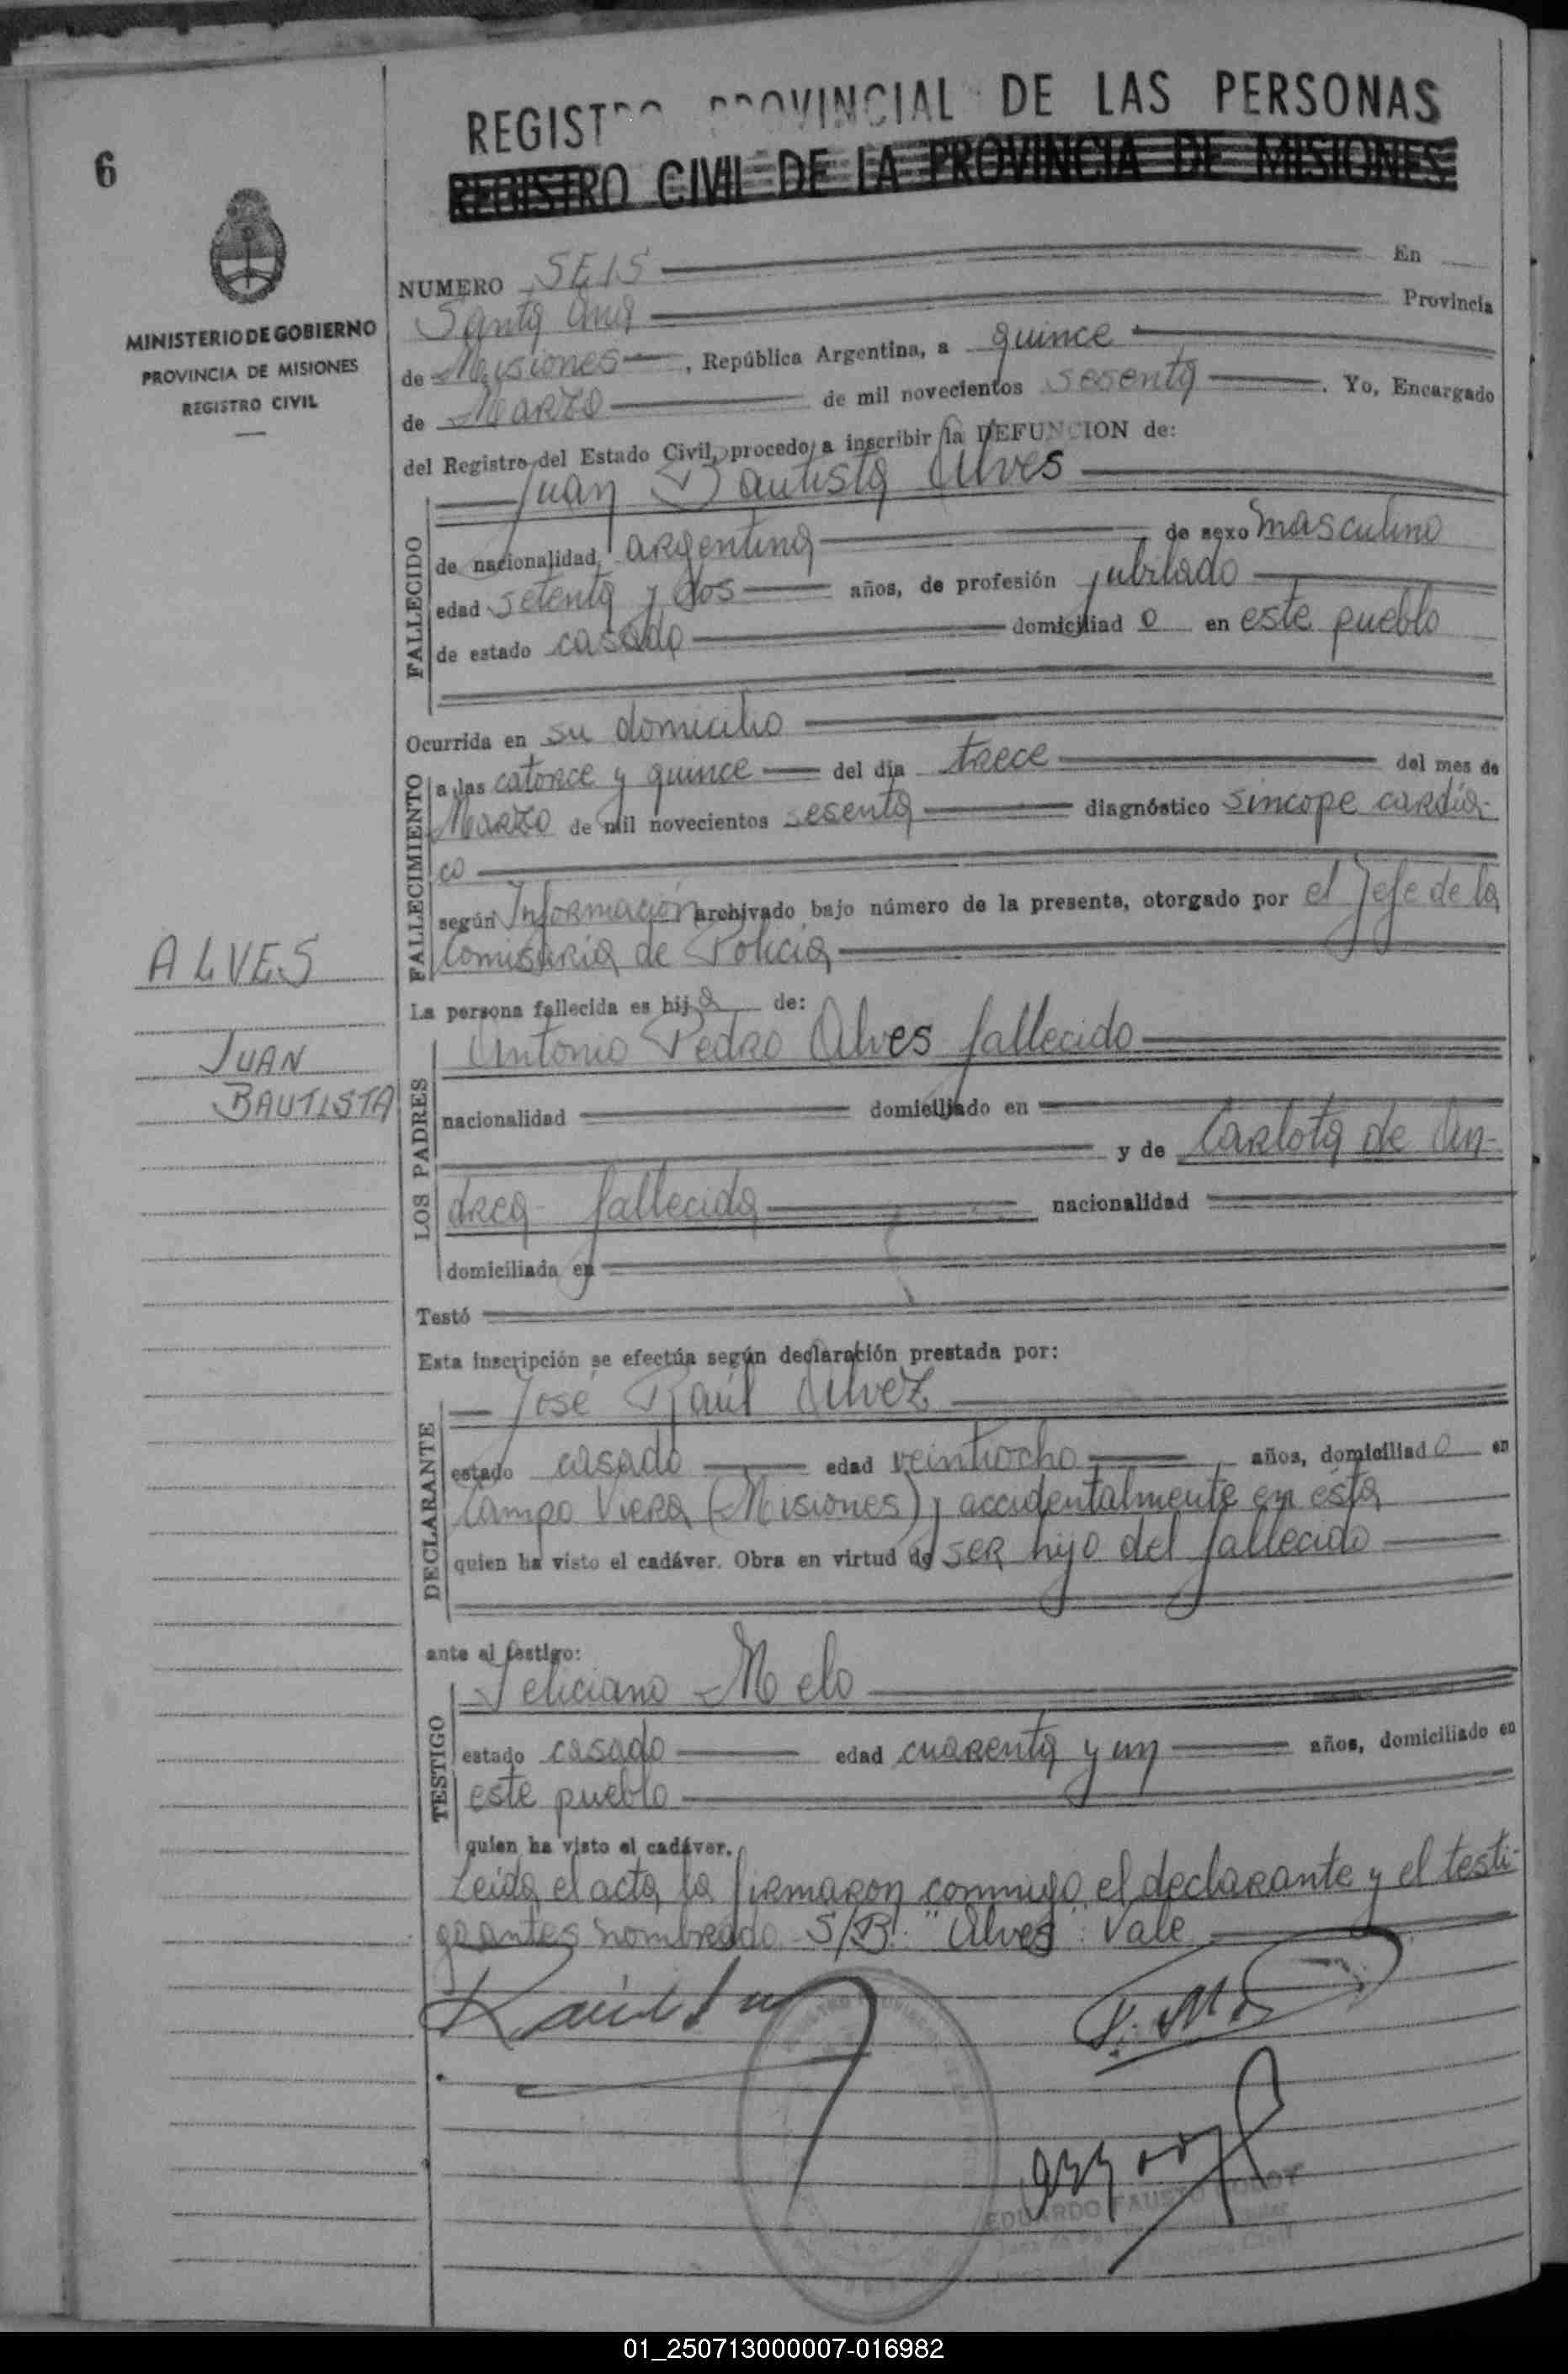 6
MINISTERIO DE GOBIERNO
PROVINCIA DE MISIONES
REGISTRO CIVIL
ALVES
JUAN
BAUTISTA
REGISTRO PROVINCIAL DE LAS PERSONAS
REGISTRO CIVIL DE LA PROVINCIA DE MISIONES
NUMERO SEIS En
Santa Ana Provincia
de Misiones, República Argentina, a quince
de Marzo de mil novecientos sesenta. Yo, Encargado
del Registro del Estado Civil, procedo a inscribir la DEFUNCION de:
Juan Bautista Alves
FALLECIDO
de nacionalidad argentina de sexo masculino
edad setenta y dos años, de profesión jubilado
de estado casado domiciliad o en este pueblo
Ocurrida en su domicilio
FALLECIMIENTO
a las catorce y quince del día trece del mes de
Marzo de mil novecientos sesenta diagnóstico síncope cardía-
co
según Información archivado bajo número de la presente, otorgado por el Jefe de la
Comisaría de Policía
La persona fallecida es hijo de:
LOS PADRES
Antonio Pedro Alves fallecido
nacionalidad domiciliado en
y de Carlota de An-
drea fallecida nacionalidad
domiciliada en
Testó
Esta inscripción se efectúa según declaración prestada por:
DECLARANTE
José Raúl Alvez
estado casado edad veintiocho años, domiciliado en
Campo Viera (Misiones) y accidentalmente en ésta
quien ha visto el cadáver. Obra en virtud de ser hijo del fallecido
ante el testigo:
TESTIGO
Feliciano Melo
estado casado edad cuarenta y un años, domiciliado en
este pueblo
quien ha visto el cadáver.
Leída el acta, la firmaron conmigo el declarante y el testi-
go antes nombrado S/B: "Alves": Vale
EDUARDO FAUSTO GODOY
01_250713000007-016982